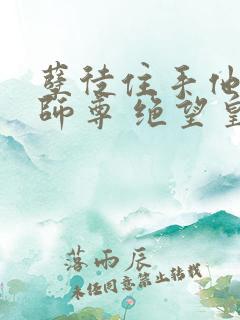 孽徒住手他
师尊 绝望皇
落雨辰
未经同意禁止转载